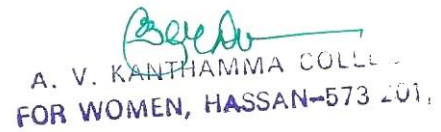 A. V. KANTHAMMA COLLE
FOR WOMEN, HASSAN-573 201.